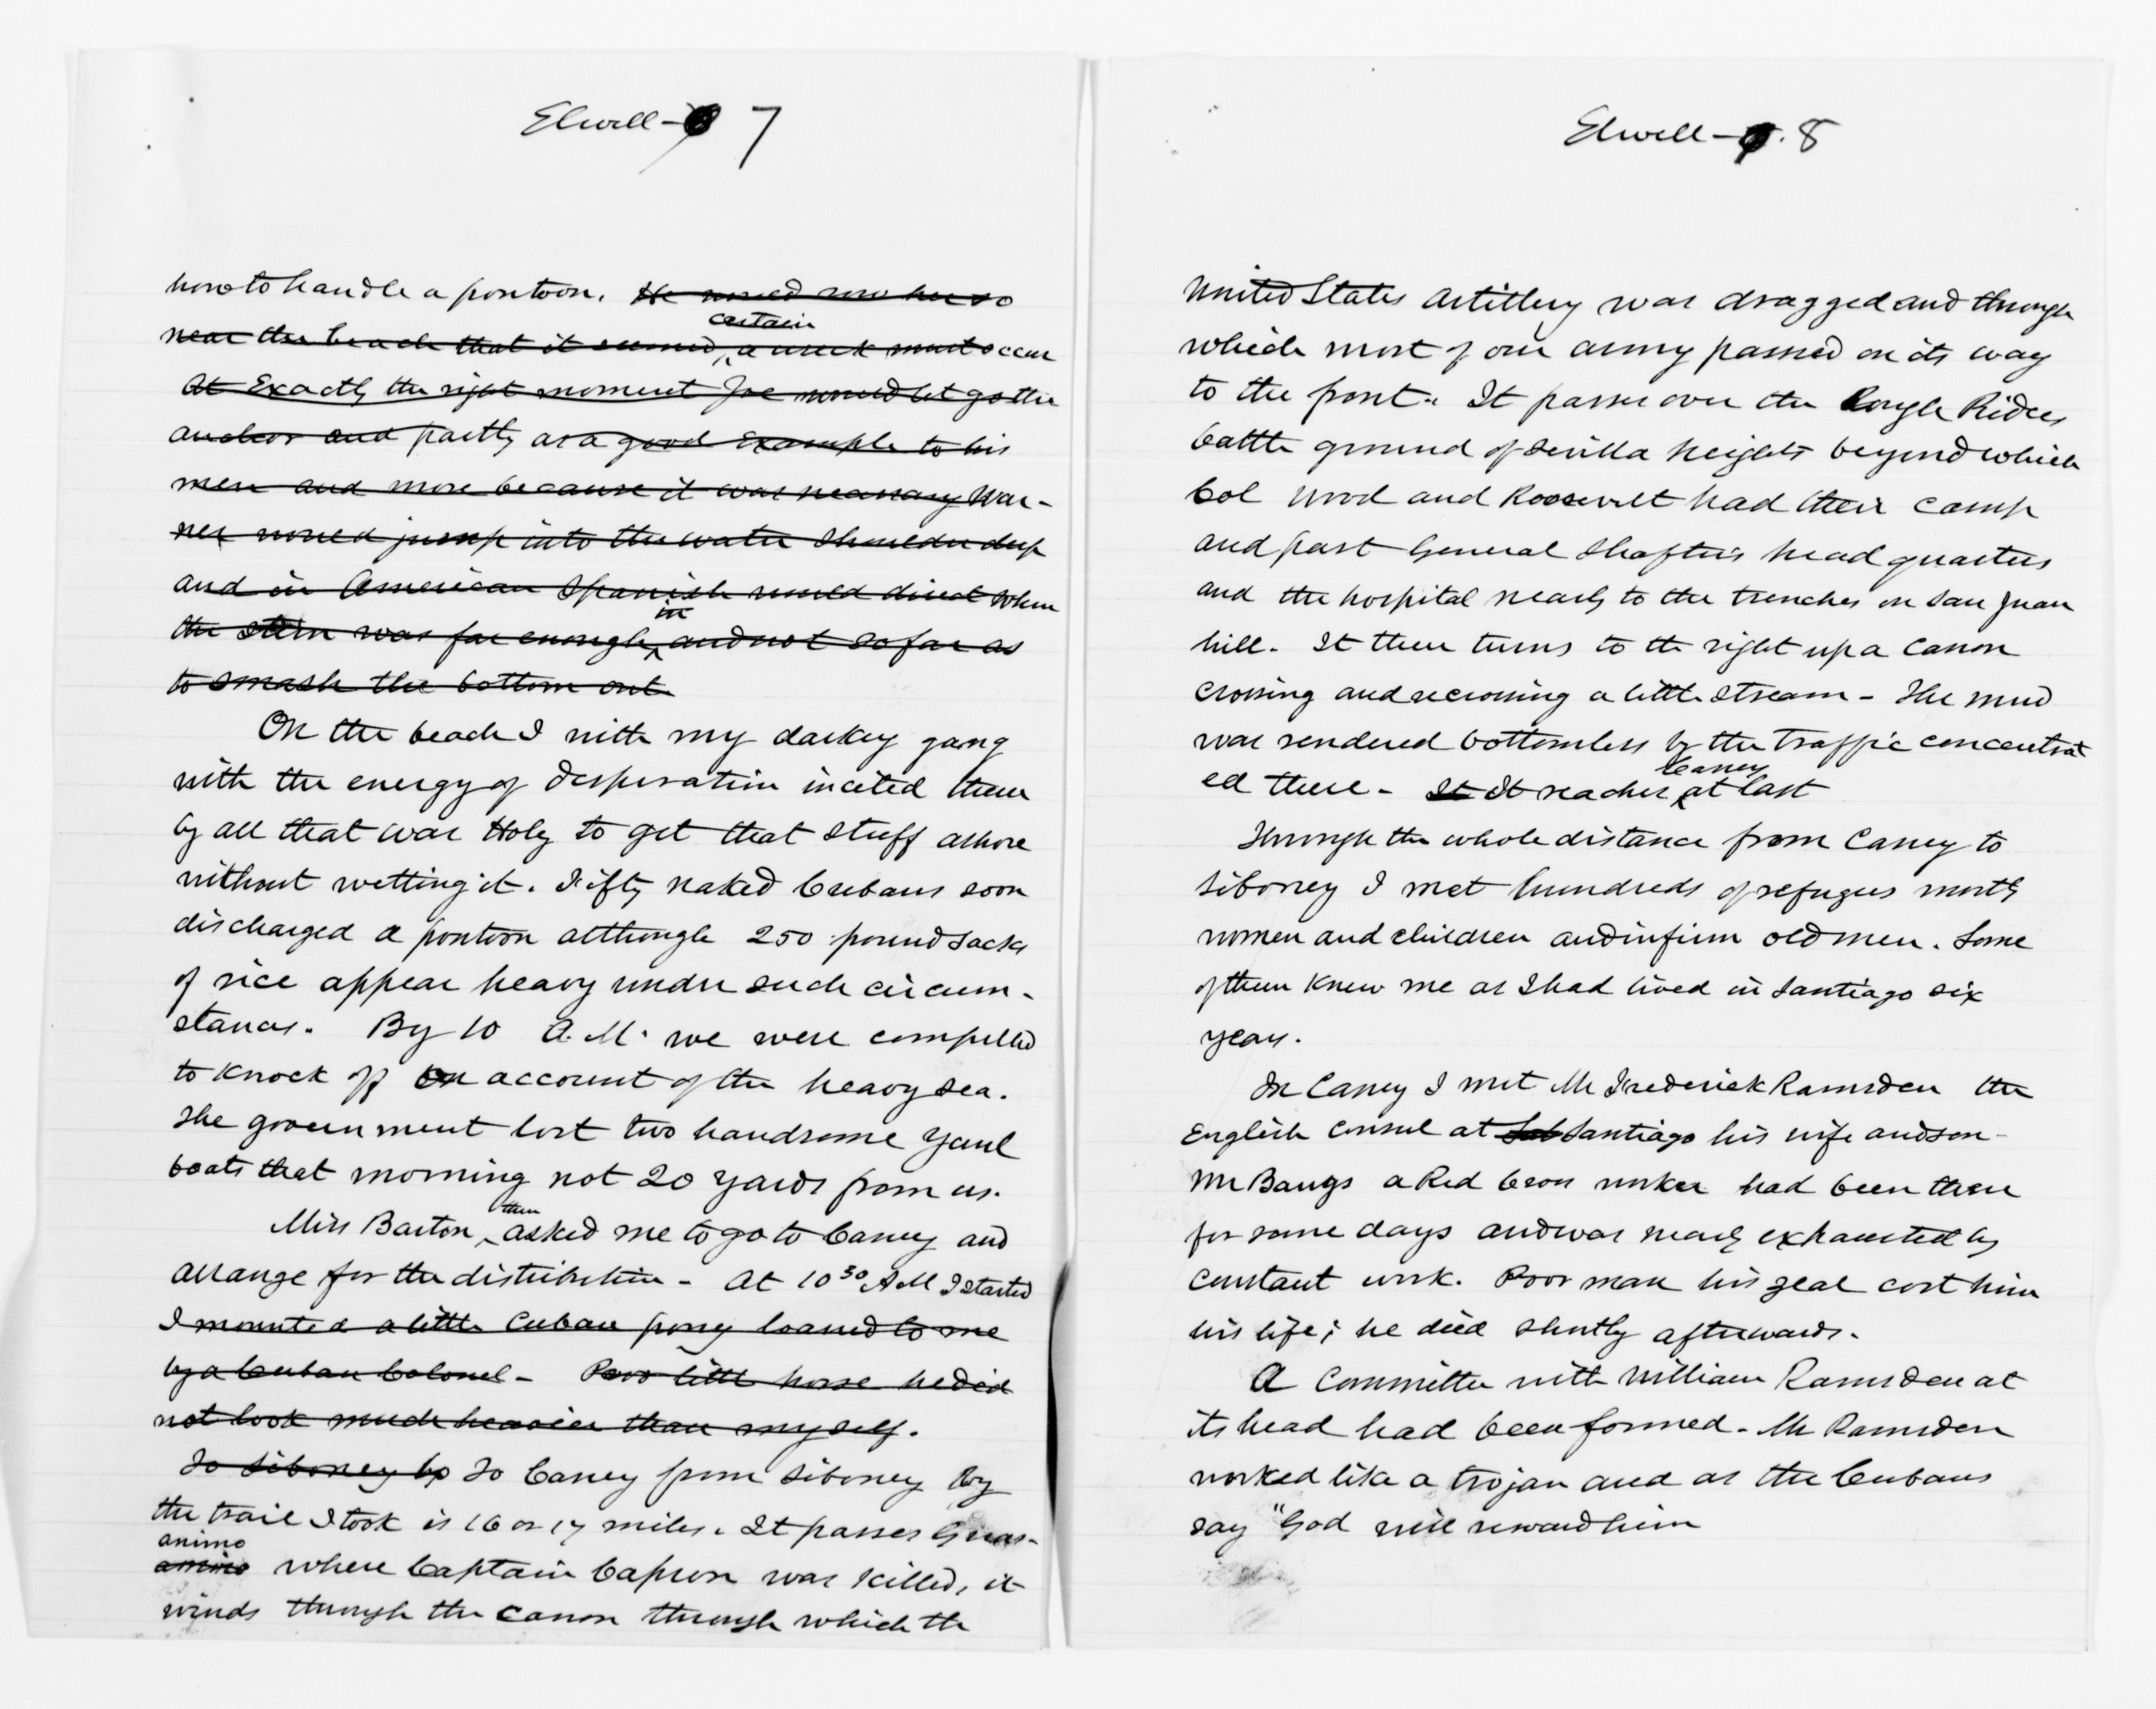 Elwell - 7
how to handle a pontoon. He would row her so
near the beach that it seemed certain a wreck must occur
At Exactly the right moment Joe would let go the
anchor and partly as a good example to his
men and more because it was necessary War-
ner would jump into the water shoulder deep
and in American Spanish would direct when
the stern was far enough in and not so far as
to smash the bottom out.
On the beach I with my darkey gang
with the energy of desperation incited them
by all that was Holy to get that stuff ashore
without wetting it. Fifty naked Cubans soon
discharged a pontoon although 250 pound sacks
of rice appear heavy under such circum-
stances. By 10 A.M. we were compelled
to knock off on account of the heavy sea.
The government lost two handsome yawl
boats that morning not 20 yards from us.
Miss Barton then asked me to go to Caney and
arrange for the distribution - At 10 30 A M I started
I mounted a little Cuban pony loaned to me
by a Cuban Colonel - Poor little horse he did
not look much heavier than myself.
To Siboney by To Caney from Siboney by
the trail I took is 16 or 17 miles. It passes Guas-
animo
where Captain Capron was killed, it
winds through the canon through which the
Elwell - 8
United States Artillery was dragged and through
which most of our army passed on its way
to the front. It passes over the Rough Riders
battle ground of Sevilla heights beyond which
Col Wood and Roosevelt had their camp
and past General Shafter's head quarters
and the hospital nearly to the trenches on San Juan
hill. It then turns to the right up a Canon
crossing and recrossing a little stream - The mud
was rendered bottomless by the traffic concentrat
ed there - It It reaches Caney at last
Through the whole distance from Caney to
Siboney I met hundreds of refugees mostly
women and children and infirm old men. Some
of them knew me as I had lived in Santiago six
years.
In Caney I met Mr Frederick Ramsden the
English Consul at Santiago his wife and son -
Mr Bangs a Red Cross worker had been there
for some days and was nearly exhausted by
constant work. Poor man his zeal cost him
his life; he died shortly afterwards.
A Committee with William Ramsden at
its head had been formed. Mr Ramsden
worked like a trojan and as the Cubans
say "God will reward him